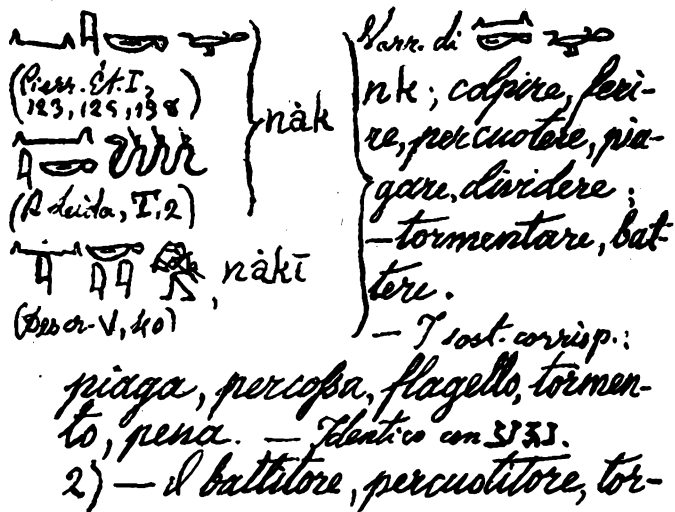 (Pierr. Ét. I,
123, 125, 138)
nȧk
(P. Leida, I, 2)
, nȧkī
V, 40)
Varr. di
nk; colpire, feri-
re, percuotere, pia-
gare, dividere;
— tormentare, bat-
tere.
— I sost. corrisp.:
piaga, percossa, flagello, tormen-
to, pena. — Identico con
2) — il battitore, percuotitore, tor-